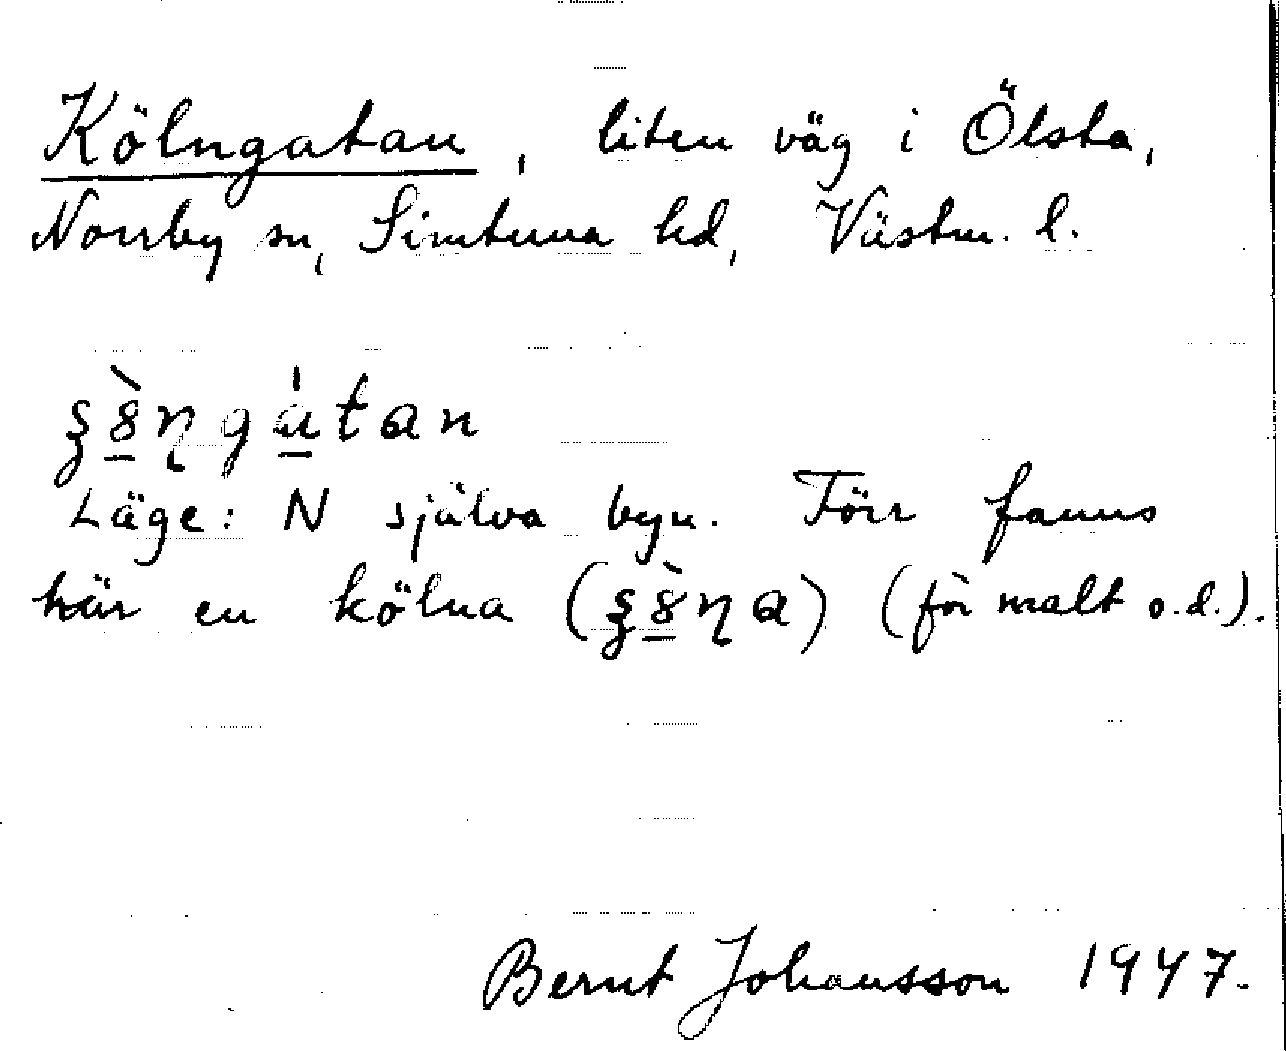 Kölngatan, liten väg i Ölsta,
Norrby sn, Simtuna hd, Västm. l.
Läge: N själva byn. Förr fanns
här en kölna (för malt o.d.).
Bernt Johansson 1947.